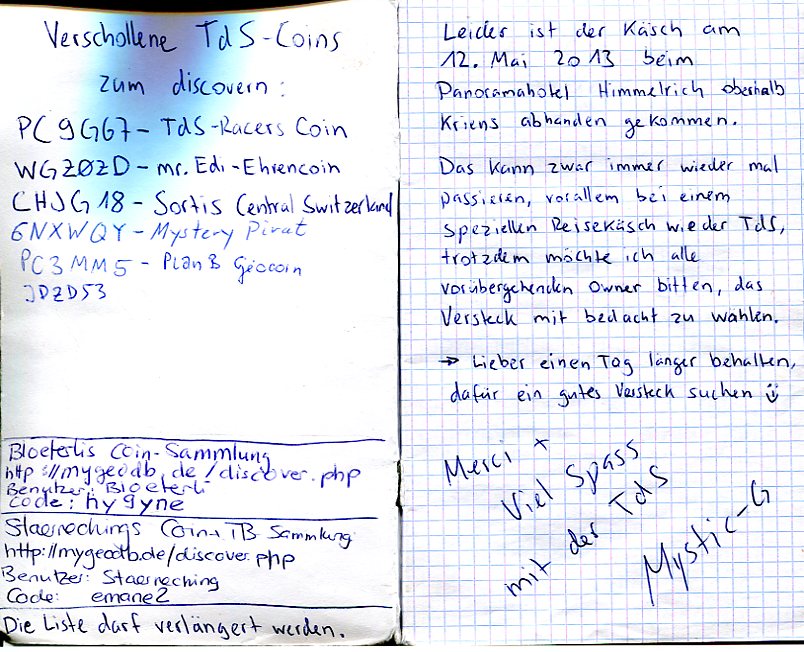 Verschollene TdS-Coins
zum discovern:
PC9GG7 - TdS-Racers Coin
WGZ0ZD - mr. Edi - Ehrencoin
CHJG18 - Sortis Central Switzerland
6NXWQY - Mystery Pirat
PC3MM5 - Plan B Geocoin
JDZD53
Bloeterlis Coin-Sammlung
http://mygeodb.de/discover.php
Benutzer: Bloeterli
Code: hygyne
Staernechings Coin + TB Sammlung
http://mygeodb.de/discover.php
Benutzer: Staerneching
Code: emane2
Die Liste darf verlängert werden.
Leider ist der Käsch am
12. Mai 2013 beim
Panoramahotel Himmelrich oberhalb
Kriens abhanden gekommen.
Das kann zwar immer wieder mal
passieren, vorallem bei einem
speziellen Reisekäsch wie der TdS,
trotzdem möchte ich alle
vorübergehenden Owner bitten, das
Versteck mit bedacht zu wählen.
→ Lieber einen Tag länger behalten,
dafür ein gutes Versteck suchen ☺
Merci +
Viel Spass
mit der TdS
Mystic-G